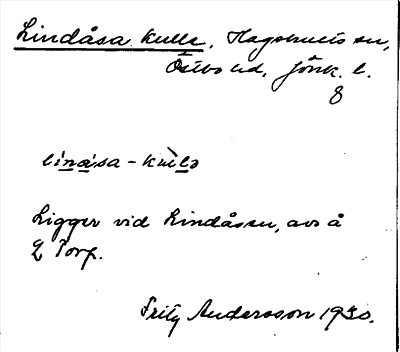 Lindåsa kulle, Hagshults sn,
Östbo hd, Jönk. l.
8
li̇́nása - kùlə
Ligger vid Lindåsen, avs å
Torp.
Fritz Andersson 1930.